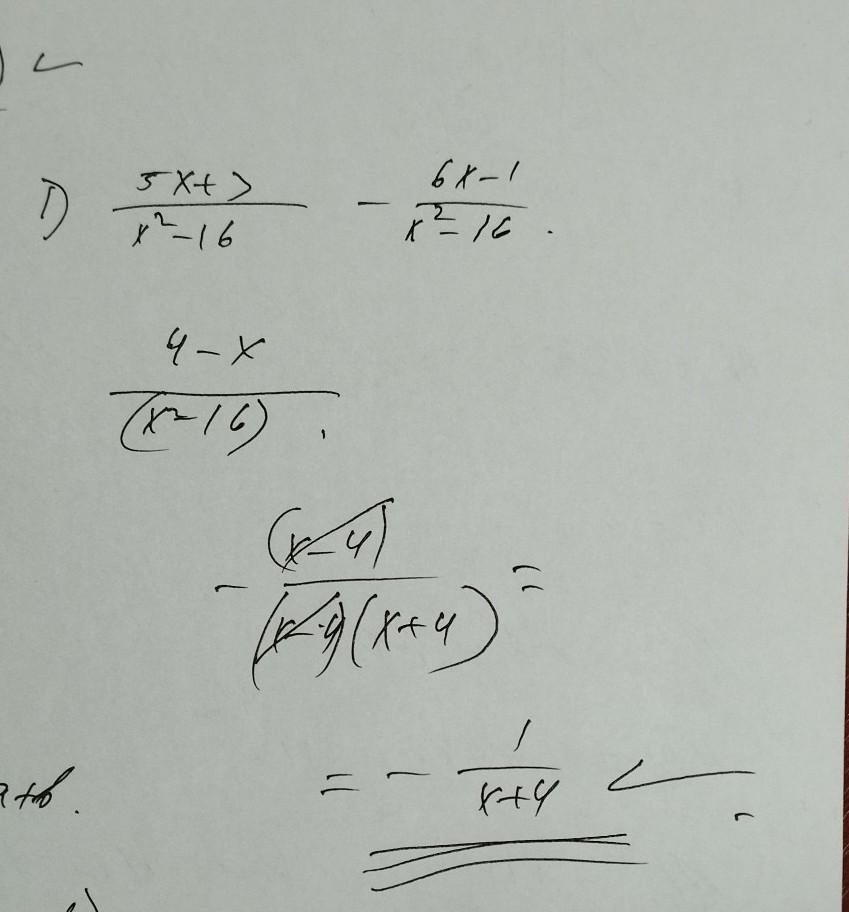 1) (5x+3)/(x²-16) - (6x-1)/(x²-16).
(4-x)/(x²-16).
-(x-4)/((x-4)(x+4)) =
= - 1/(x+4)
a+b.